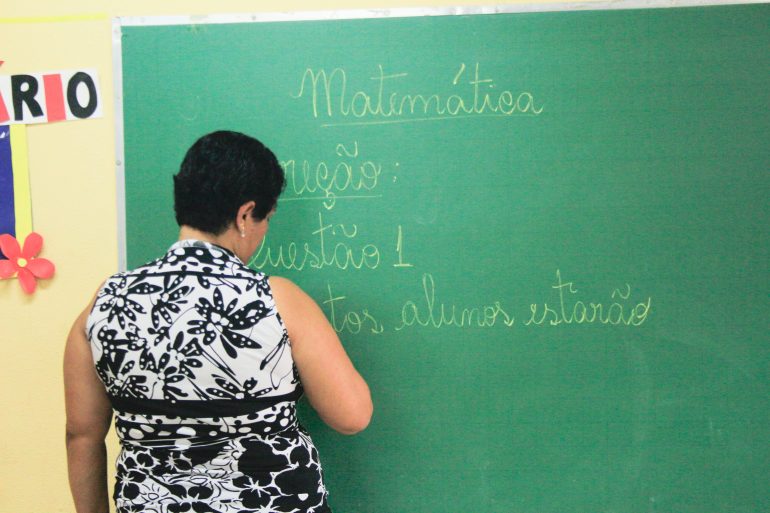 ÁRIO
Matemática
reção:
uestão 1
tos alunos estarão